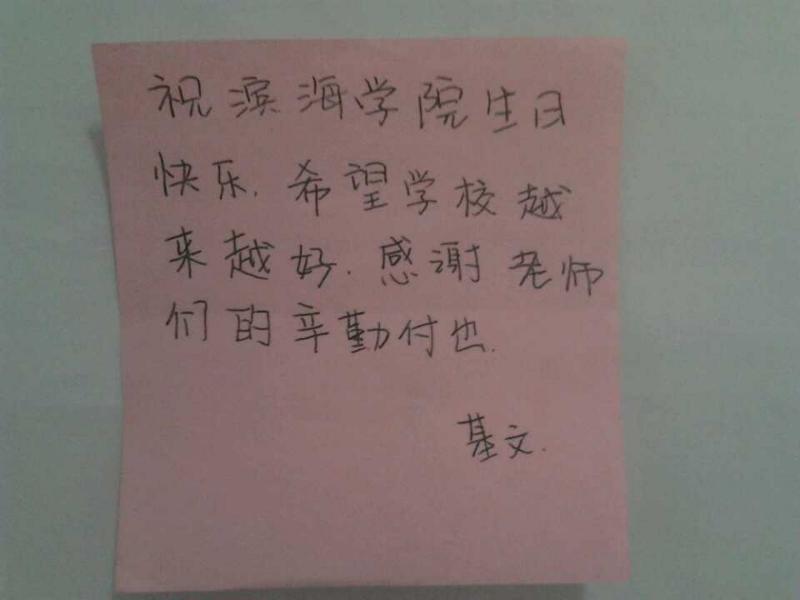 祝滨海学院生日
快乐.希望学校越
来越好.感谢老师
们的辛勤付出.
基文.